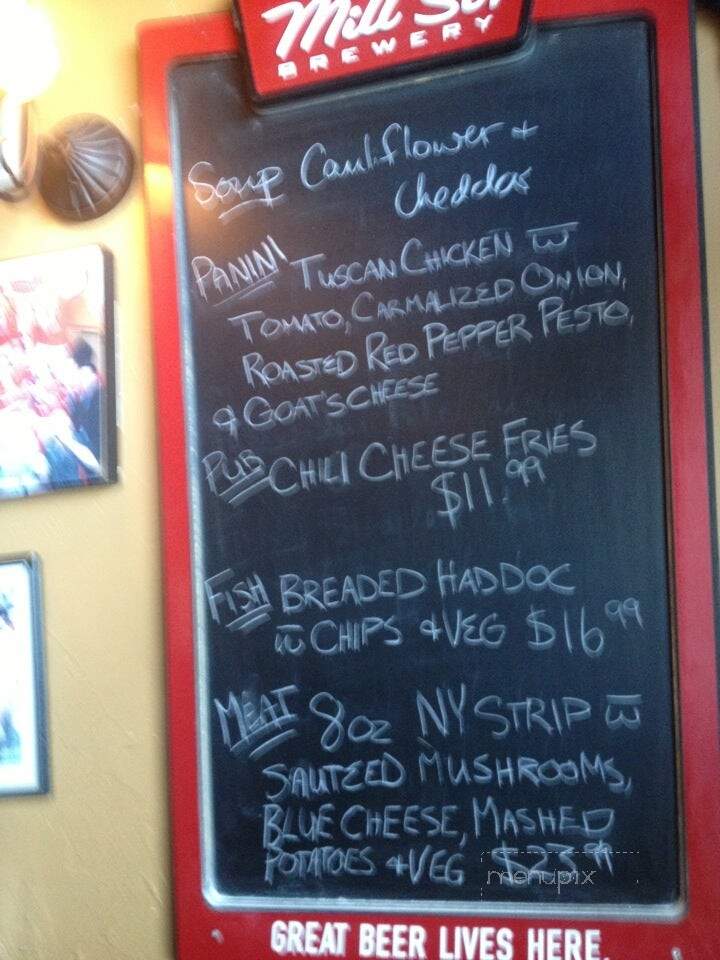 Mill St.
BREWERY
Soup Cauliflower +
Cheddar
PANINI TUSCAN CHICKEN W
TOMATO, CARMALIZED ONION,
ROASTED RED PEPPER PESTO,
& GOAT'S CHEESE
PUB CHILI CHEESE FRIES
$11.99
FISH BREADED HADDOC
W CHIPS & VEG $16 99
MEAT 8oz NY STRIP W
SAUTEED MUSHROOMS,
BLUE CHEESE, MASHED
POTATOES & VEG $23.99
menupix
GREAT BEER LIVES HERE.